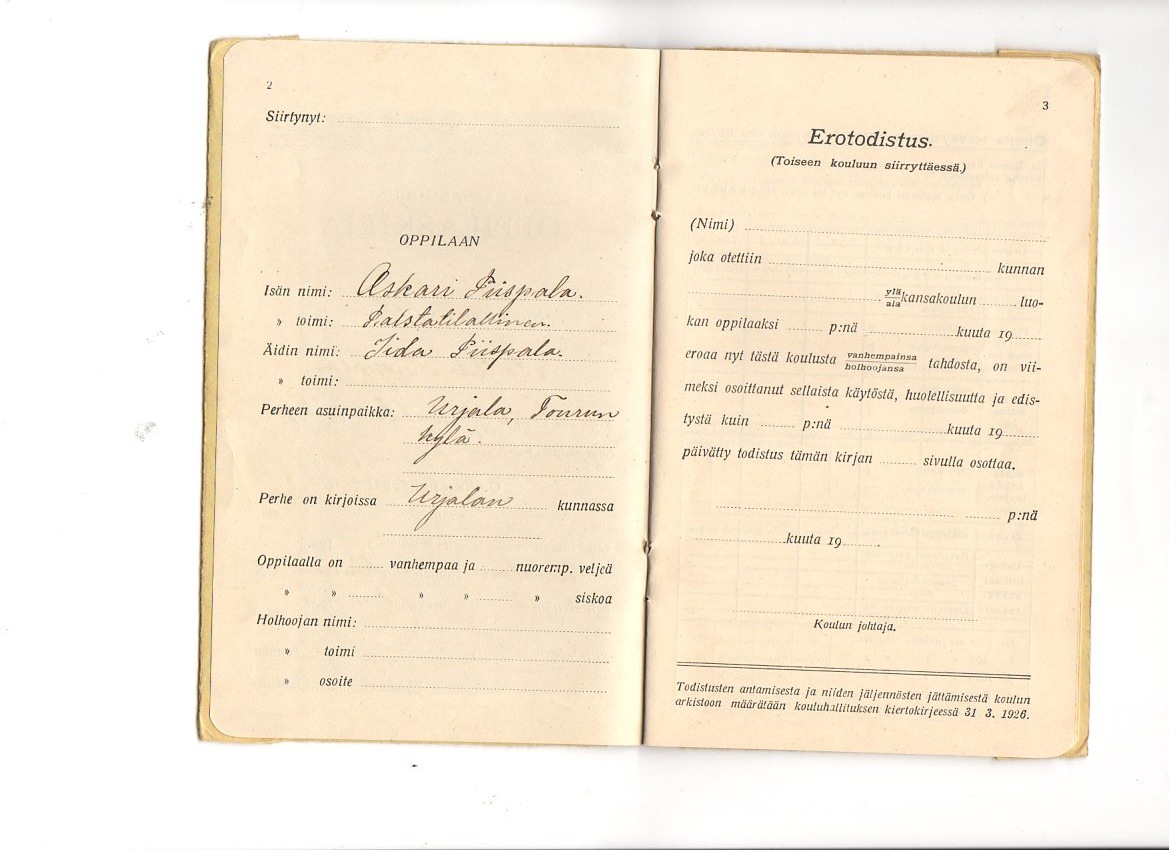 2
Siirtynyt:
OPPILAAN
Isän nimi: Oskari Piispala.
» toimi: Palstatilallinen.
Äidin nimi: Iida Piispala.
» toimi:
Perheen asuinpaikka: Urjala, Tourun
kylä.
Perhe on kirjoissa Urjalan kunnassa
Oppilaalla on vanhempaa ja nuoremp. veljeä
» » » » » siskoa
Holhoojan nimi:
» toimi
» osoite
3
Erotodistus.
(Toiseen kouluun siirryttäessä.)
(Nimi)
joka otettiin kunnan
ylä/ala kansakoulun luo-
kan oppilaaksi p:nä kuuta 19
eroaa nyt tästä koulusta vanhempainsa/holhoojansa tahdosta, on vii-
meksi osoittanut sellaista käytöstä, huolellisuutta ja edis-
tystä kuin p:nä kuuta 19
päivätty todistus tämän kirjan sivulla osottaa.
p:nä
kuuta 19 .
Koulun johtaja.
Todistusten antamisesta ja niiden jäljennösten jättämisestä koulun
arkistoon määrätään kouluhallituksen kiertokirjeessä 31 3. 1926.